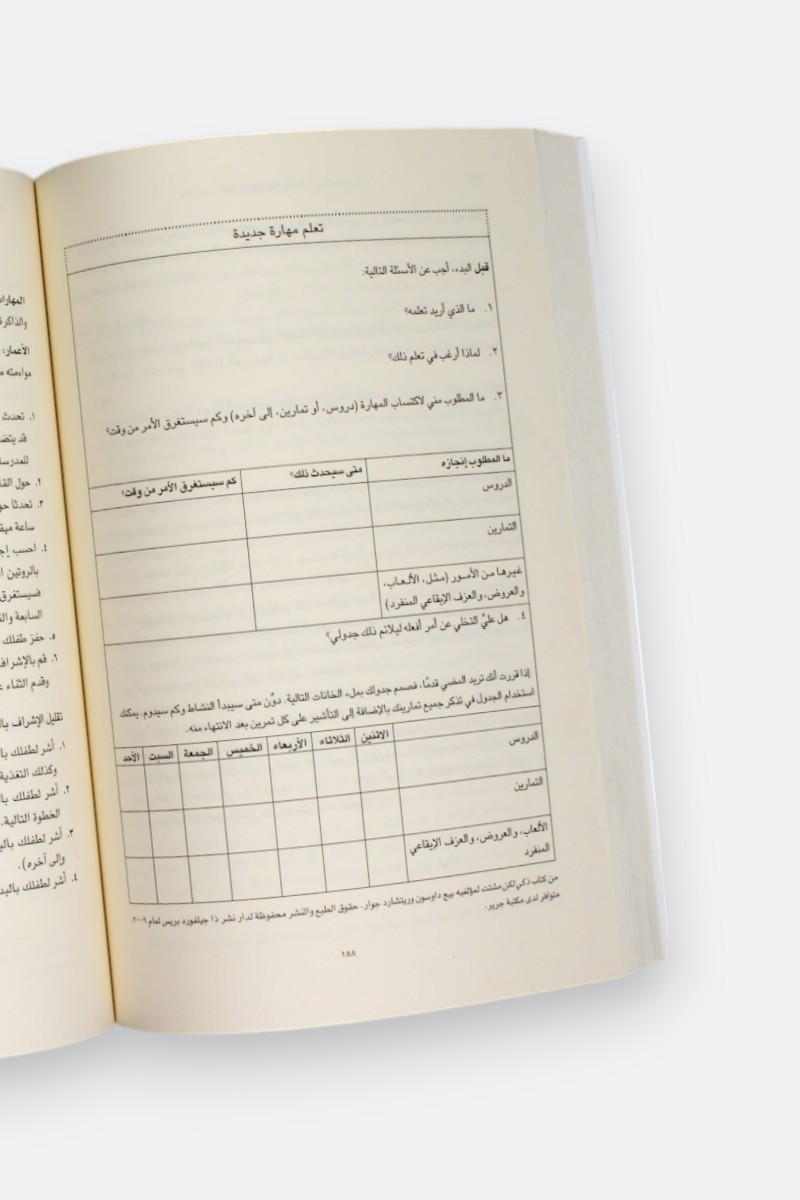 تعلم مهارة جديدة
قبل البدء، أجب عن الأسئلة التالية:
١. ما الذي أريد تعلمه؟
٢. لماذا أرغب في تعلم ذلك؟
٣. ما المطلوب مني لاكتساب المهارة (دروس، أو تمارين، إلى آخره) وكم سيستغرق الأمر من وقت؟
ما المطلوب إنجازه متى سيحدث ذلك؟ كم سيستغرق الأمر من وقت؟
الدروس
التمارين
غيرها من الأمور (مثل، الألعاب،
والعروض، والعزف الإيقاعي المنفرد)
٤. هل عليَّ التخلي عن أمر أفعله ليلائم ذلك جدولي؟
إذا قررت أنك تريد المضي قدمًا، فصمم جدولك بملء الخانات التالية. دوِّن متى سيبدأ النشاط وكم سيدوم. يمكنك
استخدام الجدول في تذكر جميع تمارينك بالإضافة إلى التأشير على كل تمرين بعد الانتهاء منه.
الاثنين الثلاثاء الأربعاء الخميس الجمعة السبت الأحد
الدروس
التمارين
الألعاب، والعروض، والعزف الإيقاعي
المنفرد
من كتاب ذكي لكن مشتت لمؤلفيه بيج داوسون وريتشارد جوار. حقوق الطبع والنشر محفوظة لدار نشر ذا جيلفورد بريس لعام ٢٠٠٩.
متوافر لدى مكتبة جرير.
١٥٨
والذاكرة
الأعمار:
١. تحدث
للمدرسة
٢. حول
٣. تحدثا
٤. احسب
بالروتين
فسيستغرق
السابعة
٥. حفز طفلك
٦. قم بالإشراف
وقدم الثناء
تقليل الإشراف
١. أشر لطفلك
وكذلك التغذية
٢. أشر لطفلك
الخطوة التالية.
٣. أشر لطفلك
وإلى آخره).
٤. أشر لطفلك